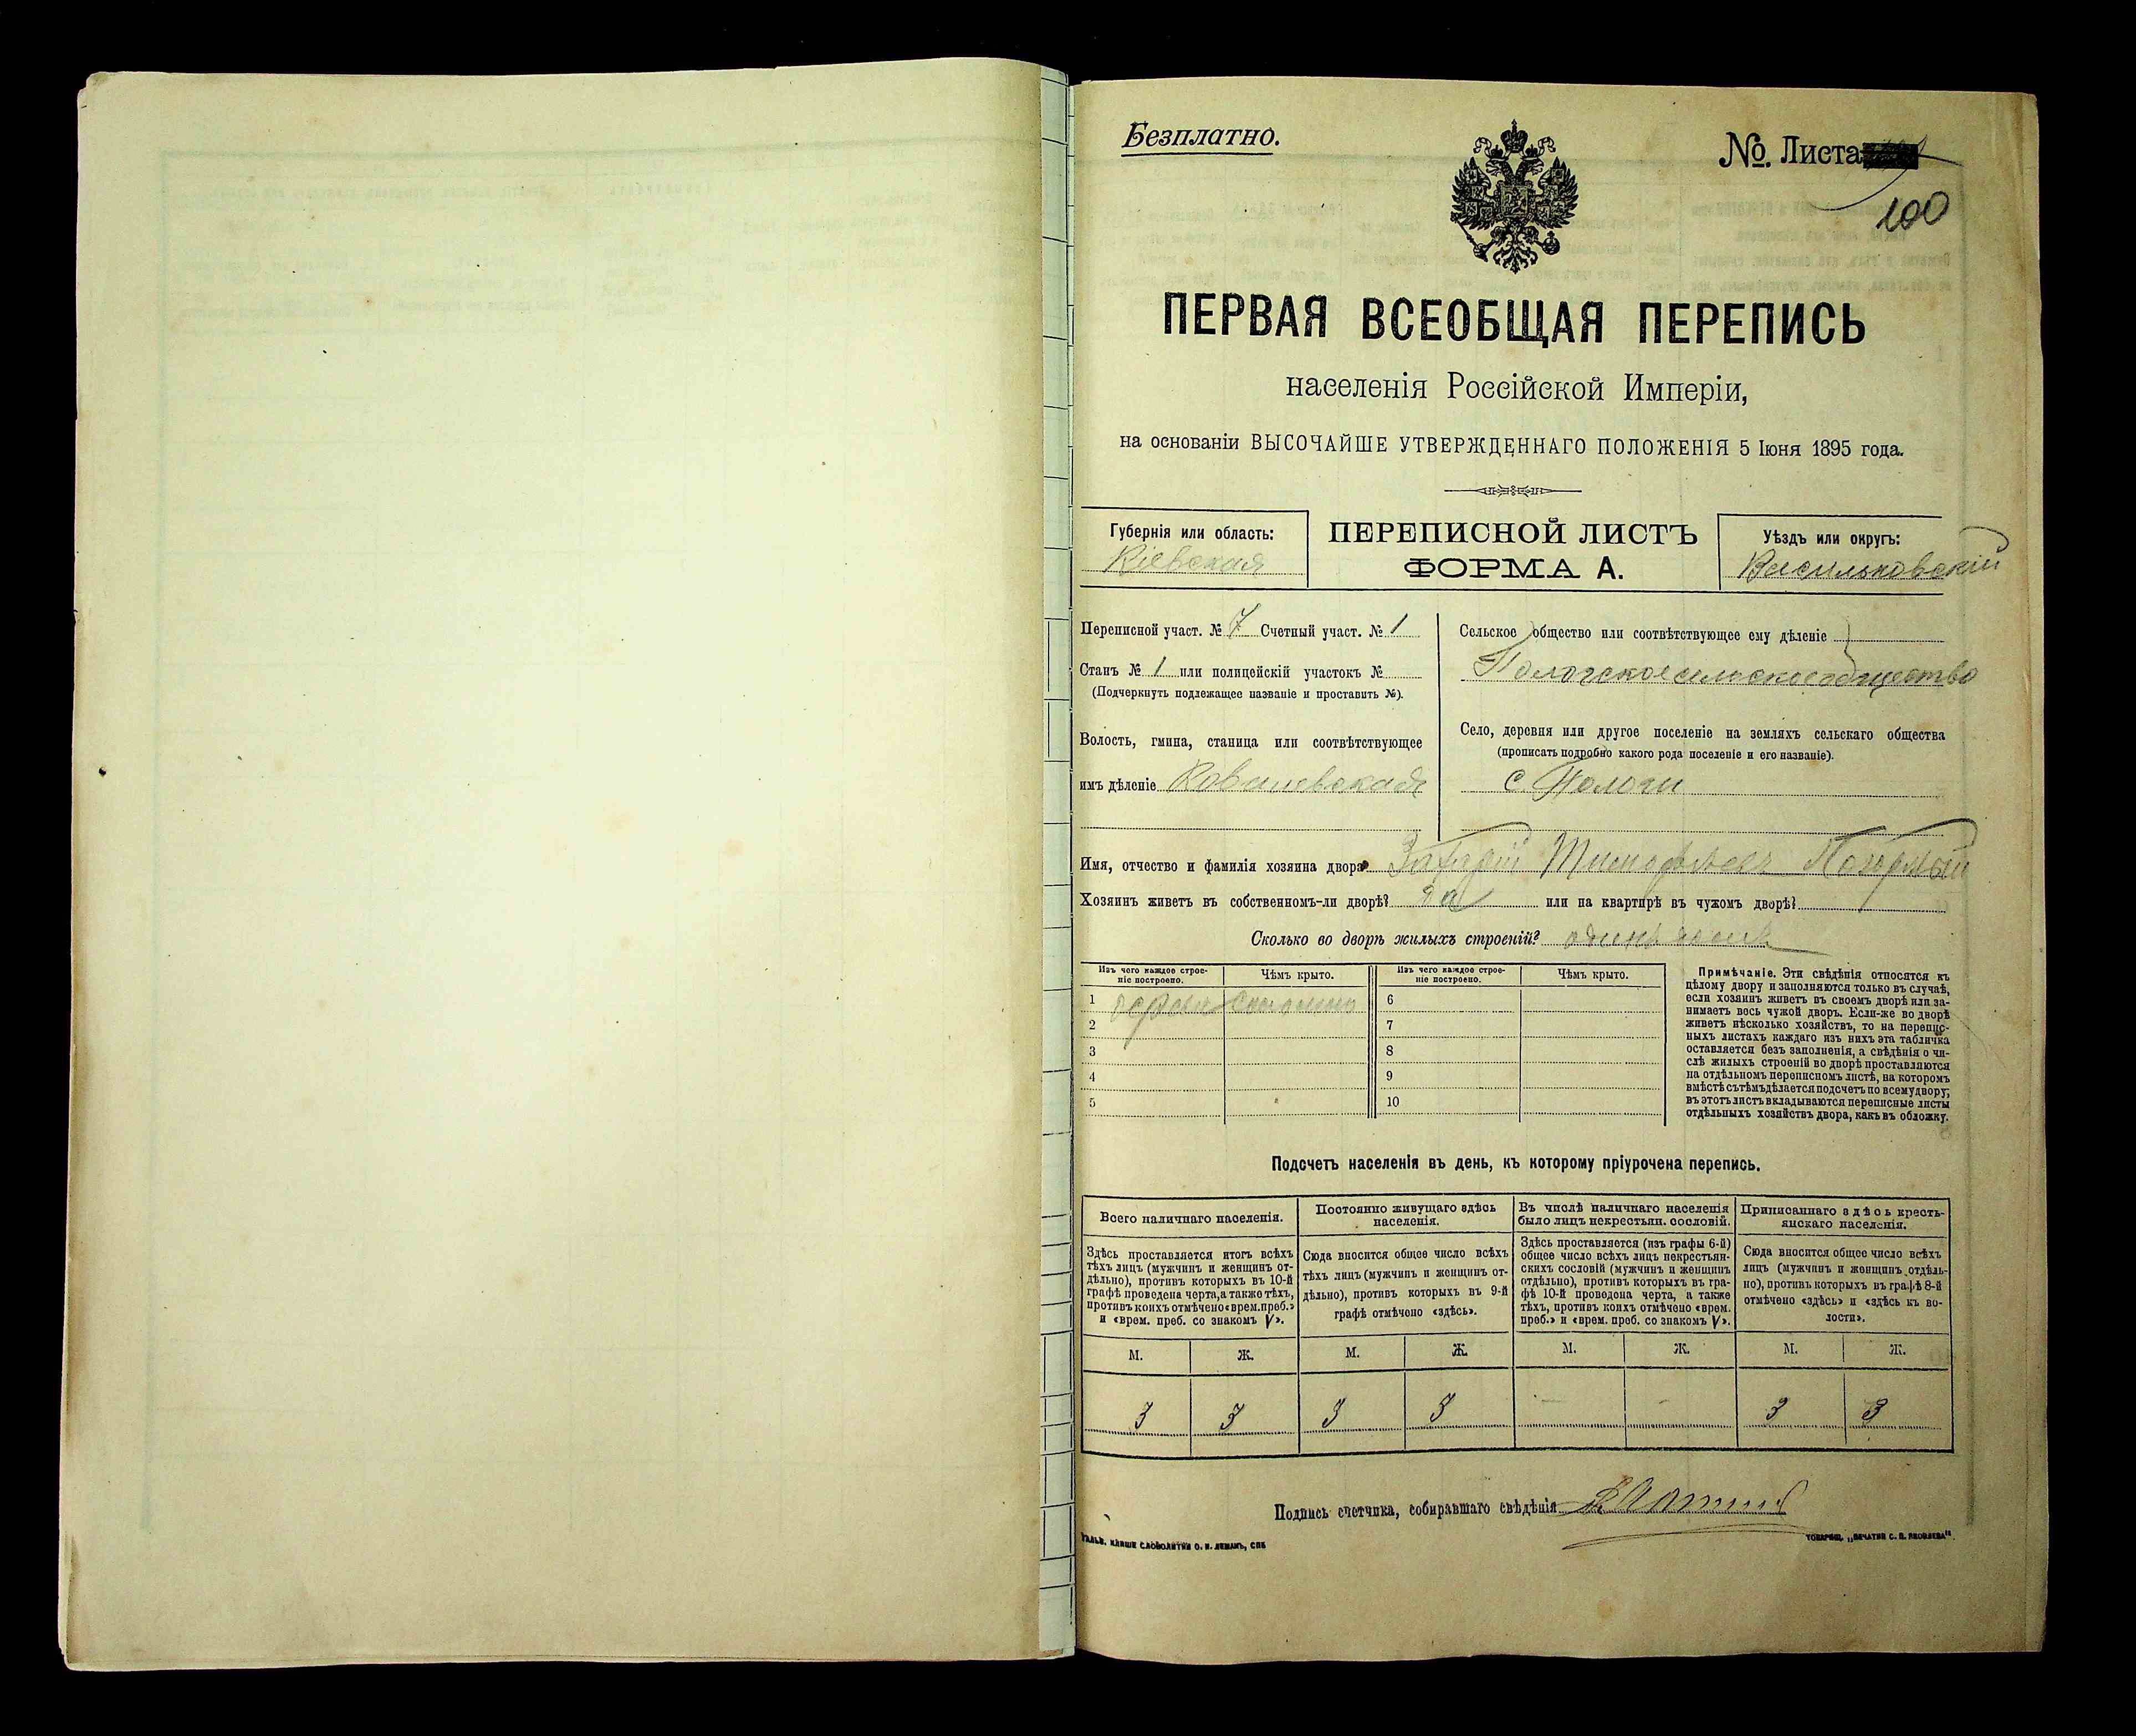 Безплатно.
№. Листа
100
ПЕРВАЯ ВСЕОБЩАЯ ПЕРЕПИСЬ
населенія Россійской Имперіи,
на основаніи ВЫСОЧАЙШЕ УТВЕРЖДЕННАГО ПОЛОЖЕНІЯ 5 Іюня 1895 года.
Губернія или область:
Кіевская
ПЕРЕПИСНОЙ ЛИСТЪ
ФОРМА А.
Уѣздъ или округъ:
Васильковскій
Переписной участ. № 7 Счетный участ. № 1
Станъ № 1 или полицейскій участокъ №
(Подчеркнуть подлежащее названіе и проставить №).
Волость, гмина, станица или соотвѣтствующее
имъ дѣленіе Ковалевская
Сельское общество или соотвѣтствующее ему дѣленіе
Пологское сельское общество
Село, деревня или другое поселеніе на земляхъ сельскаго общества
(прописать подробно какого рода поселеніе и его названіе).
с. Пологи
Имя, отчество и фамилія хозяина двора Захарій Тимофѣевъ
Хозяинъ живетъ въ собственномъ-ли дворѣ? да или на квартирѣ въ чужомъ дворѣ?
Сколько во дворѣ жилыхъ строеній? одинъ
Изъ чего каждое строе-
ніе построено.
Чѣмъ крыто.
Изъ чего каждое строе-
ніе построено.
Чѣмъ крыто.
1 соломою
2
3
4
5
6
7
8
9
10
Примѣчаніе. Эти свѣдѣнія относятся къ
цѣлому двору и заполняются только въ случаѣ,
если хозяинъ живетъ въ своемъ дворѣ или за-
нимаетъ весь чужой дворъ. Если-же во дворѣ
живетъ нѣсколько хозяйствъ, то на перепис-
ныхъ листахъ каждаго изъ нихъ эта табличка
оставляется безъ заполненія, а свѣдѣнія о чи-
слѣ жилыхъ строеній во дворѣ проставляются
на отдѣльномъ переписномъ листѣ, на которомъ
вмѣстѣ съ тѣмъ дѣлается подсчетъ по всему двору;
въ этотъ листъ вкладываются переписные листы
отдѣльныхъ хозяйствъ двора, какъ въ обложку.
Подсчетъ населенія въ день, къ которому пріурочена перепись.
Всего наличнаго населенія.
Здѣсь проставляется итогъ всѣхъ
тѣхъ лицъ (мужчинъ и женщинъ от-
дѣльно), противъ которыхъ въ 10-й
графѣ проведена черта, а также тѣхъ,
противъ коихъ отмѣчено «врем. преб.»
и «врем. преб. со знакомъ V».
Постоянно живущаго здѣсь
населенія.
Сюда вносится общее число всѣхъ
тѣхъ лицъ (мужчинъ и женщинъ от-
дѣльно), противъ которыхъ въ 9-й
графѣ отмѣчено «здѣсь».
Въ числѣ наличнаго населенія
было лицъ некрестьян. сословій.
Здѣсь проставляется (изъ графы 6-й)
общее число всѣхъ лицъ некрестьян-
скихъ сословій (мужчинъ и женщинъ
отдѣльно), противъ которыхъ въ гра-
фѣ 10-й проведена черта, а также
тѣхъ, противъ коихъ отмѣчено «врем.
преб.» и «врем. преб. со знакомъ V».
Приписаннаго здѣсь кресть-
янскаго населенія.
Сюда вносится общее число всѣхъ
лицъ (мужчинъ и женщинъ отдѣль-
но), противъ которыхъ въ графѣ 8-й
отмѣчено «здѣсь» и «здѣсь къ во-
лости».
М. Ж. М. Ж. М. Ж. М. Ж.
3 3 3 3 - - 3 3
Подпись счетчика, собиравшаго свѣдѣнія
СЛОВОЛИТНИ О. И. ЛЕМАНЪ, СПБ
ТОВАРИЩ. „ПЕЧАТНЯ С. П. ЯКОВЛЕВА"